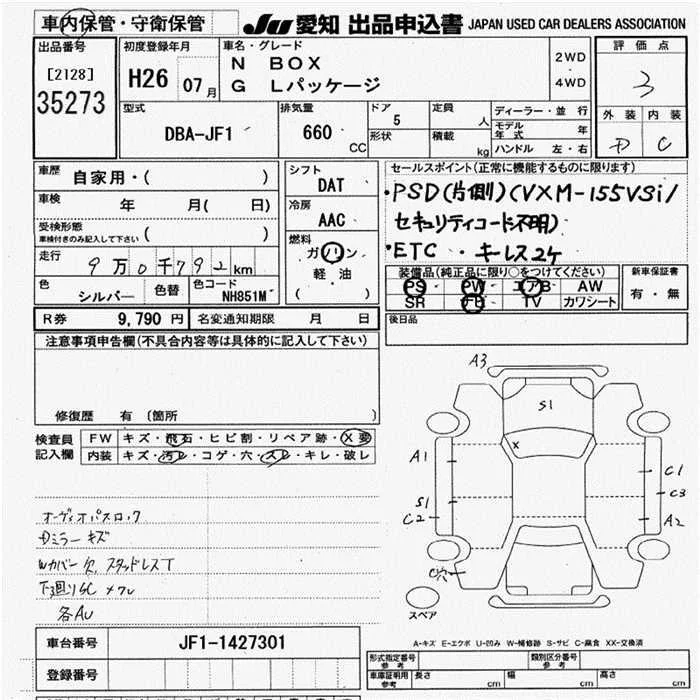 車内保管・守衛保管
JU 愛知 出品申込書 JAPAN USED CAR DEALERS ASSOCIATION
出品番号
[2128]
35273
初度登録年月
H26 07月
車名・グレード
N BOX
G Lパッケージ
2WD
4WD
評価点
3
外装 内装
D C
型式
DBA-JF1
排気量
660 CC
ドア
5
形状
定員
人
積載
kg
ディーラー・並行
モデル年式 年
ハンドル 左・右
車歴
自家用・( )
車検
年 月( 日)
受検形態
車検付きのみ記入して下さい ( )
走行
9万0千792km
色
シルバー
色替
色コード
NH851M
シフト
DAT
冷房
AAC
燃料
ガソリン
軽・油
( )
セールスポイント(正常に機能するものに限ります)
・PSD(片側)(VXM-155VSi/
セキュリティコード不明)
・ETC ・キーレス2ケ
装備品(純正品に限り○をつけてください)
PS PW エアB AW
SR TV カワシート
新車保証書
有・無
R券 9,790円
名変通知期限 月 日
後日品
注意事項申告欄(不具合内容等は具体的に記入して下さい)
修復歴 有 (箇所 )
検査員
記入欄
FW キズ・飛石・ヒビ割・リペア跡・X要
内装 キズ・汚レ・コゲ・穴・スレ・キレ・破レ
オーディオパスロック
Dミラーキズ
Wカバー欠 スタッドレスT
下廻りSC メクレ
各AU
A3
S1
X
A1
C1
C3
S1
C2
A2
C穴
スペア
A-キズ E-エクボ U-凹み W-補修跡 S-サビ C-腐食 XX-交換済
車台番号
JF1-1427301
登録番号
形式指定番号
参考
類別区分番号
参考
車庫証明用
参考
長さ cm
幅 cm
高さ cm